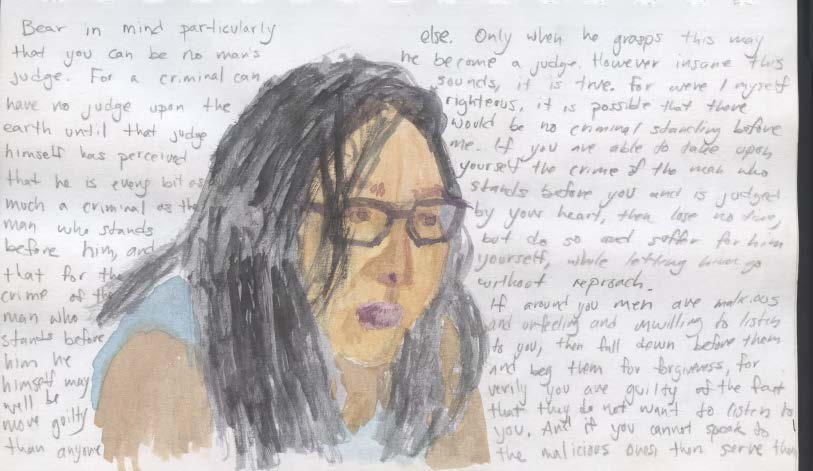 Bear in mind particularly
that you can be no man's
judge. For a criminal can
have no judge upon the
earth until that judge
himself has perceived
that he is every bit as
much a criminal as the
man who stands
before him, and
that for the
crime of the
man who
stands before
him he
himself may
well be
more guilty
than anyone
else. Only when he grasps this may
he become a judge. However insane this
sounds, it is true. For were I myself
righteous, it is possible that there
would be no criminal standing before
me. If you are able to take upon
yourself the crime of the man who
stands before you and is judged
by your heart, then lose no time,
but do so and suffer for him
yourself, while letting him go
without reproach.
If around you men are malicious
and unfeeling and unwilling to listen
to you, then fall down before them
and beg them for forgiveness, for
verily you are guilty of the fact
that they do not want to listen to
you. And if you cannot speak to
the malicious ones, then serve them